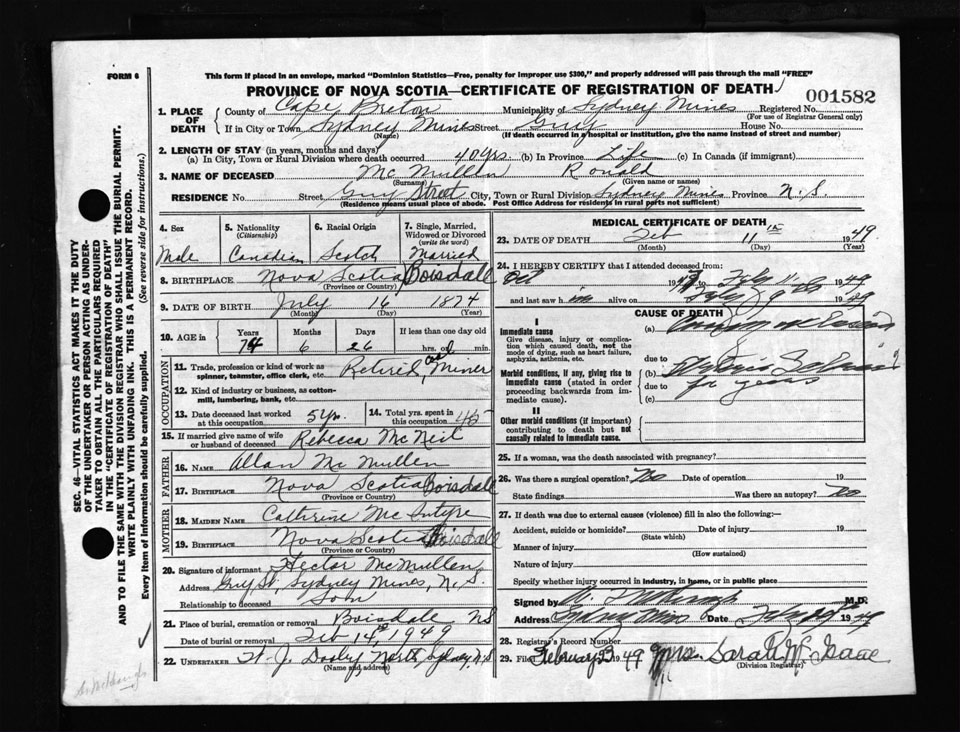 FORM 6
This form if placed in an envelope, marked "Dominion Statistics—Free, penalty for improper use $300," and properly addressed will pass through the mail "FREE"
PROVINCE OF NOVA SCOTIA—CERTIFICATE OF REGISTRATION OF DEATH
001582
1. PLACE OF DEATH
County of Cape Breton Municipality of Sydney Mines Registered No.
(For use of Registrar General only)
If in City or Town Sydney Mines Street Guy House No.
(Name) (If death occurred in a hospital or institution, give the name instead of street and number)
2. LENGTH OF STAY (in years, months and days)
(a) In City, Town or Rural Division where death occurred 40 yrs. (b) In Province Life (c) In Canada (if immigrant)
3. NAME OF DECEASED Mc Mullen Ronald
(Surname) (Given name or names)
RESIDENCE No. Street Guy Street City, Town or Rural Division Sydney Mines Province N.S.
(Residence means usual place of abode. Post Office Address for residents in rural parts not sufficient)
4. Sex Male
5. Nationality (Citizenship) Canadian
6. Racial Origin Scotch
7. Single, Married, Widowed or Divorced (write the word) Married
8. BIRTHPLACE Nova Scotia Boisdale
(Province or Country)
9. DATE OF BIRTH July 16 1874
(Month) (Day) (Year)
10. AGE in Years Months Days If less than one day old
74 6 26 hrs. or min.
OCCUPATION
11. Trade, profession or kind of work as spinner, teamster, office clerk, etc. Retired coal Miner
12. Kind of industry or business, as cotton-mill, lumbering, bank, etc.
13. Date deceased last worked at this occupation 5 yrs.
14. Total yrs. spent in this occupation 45
15. If married give name of wife or husband of deceased Rebecca McNeil
FATHER
16. NAME Allan Mc Mullen
17. BIRTHPLACE Nova Scotia Boisdale
(Province or Country)
MOTHER
18. MAIDEN NAME Cathrine Mc Intyre
19. BIRTHPLACE Nova Scotia Boisdale
(Province or Country)
20. Signature of informant Hector McMullen
Address Guy St, Sydney Mines, N.S.
Relationship to deceased Son
21. Place of burial, cremation or removal Boisdale NS
Date of burial or removal Feb 14th 1949
22. UNDERTAKER J. Dooley North Sydney N.S
(Name and address)
MEDICAL CERTIFICATE OF DEATH
23. DATE OF DEATH Feb 11th 1949
(Month) (Day) (Year)
24. I HEREBY CERTIFY that I attended deceased from:
Oct 19 to Feby 11 1949
and last saw him alive on Feby 9 1949
CAUSE OF DEATH
I
Immediate cause
Give disease, injury or complication which caused death, not the mode of dying, such as heart failure, asphyxia, asthenia, etc.
(a)
due to
Morbid conditions, if any, giving rise to immediate cause (stated in order proceeding backwards from immediate).
(b)
due to for years
(c)
II
Other morbid conditions (if important) contributing to death but not causally related to immediate cause.
25. If a woman, was the death associated with pregnancy?
26. Was there a surgical operation? No Date of operation 19
State findings Was there an autopsy? No
27. If death was due to external causes (violence) fill in also the following:—
Accident, suicide or homicide? Date of injury 19
(State which)
Manner of injury
(How sustained)
Nature of injury
Specify whether injury occurred in industry, in home, or in public place
Signed by M.D.
Address Sydney Mines Date Feby 1949
28. Registrar's Record Number
29. Filed February 23 1949 Mrs. Sarah Mc Isaac
(Division Registrar)
SEC. 46—VITAL STATISTICS ACT MAKES IT THE DUTY OF THE UNDERTAKER OR PERSON ACTING AS UNDERTAKER TO OBTAIN ALL THE PARTICULARS REQUIRED IN THE "CERTIFICATE OF REGISTRATION OF DEATH" AND TO FILE THE SAME WITH THE DIVISION REGISTRAR WHO SHALL ISSUE THE BURIAL PERMIT.
WRITE PLAINLY WITH UNFADING INK. THIS IS A PERMANENT RECORD.
Every item of information should be carefully supplied. (See reverse side for instructions.)